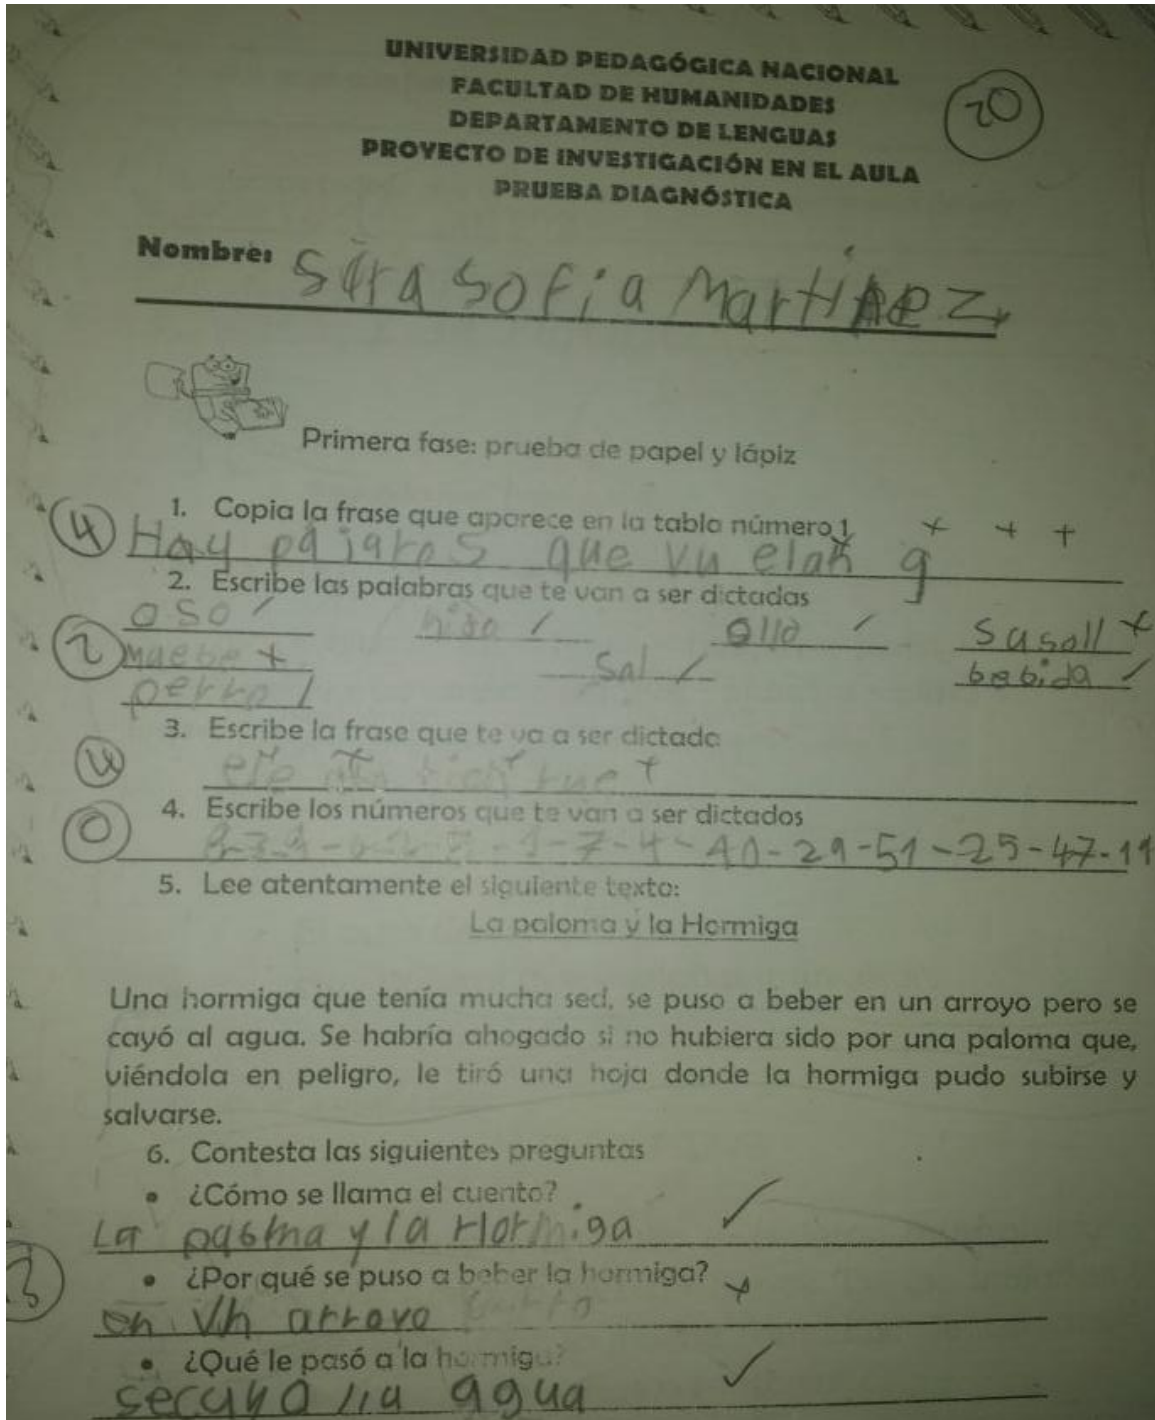 UNIVERSIDAD PEDAGÓGICA NACIONAL
FACULTAD DE HUMANIDADES
DEPARTAMENTO DE LENGUAS
PROYECTO DE INVESTIGACIÓN EN EL AULA
PRUEBA DIAGNÓSTICA
20
Nombre: Sara Sofia Martinez
Primera fase: prueba de papel y lápiz
1. Copia la frase que aparece en la tabla número 1
4 Hay pajaros que vuelan g
2. Escribe las palabras que te van a ser dictadas
oso olla Susall
2 muebe sal bebida
perro
3. Escribe la frase que te va a ser dictada
4
4. Escribe los números que te van a ser dictados
0 7-4-40-29-51-25-47-19
5. Lee atentamente el siguiente texto:
La paloma y la Hormiga
Una hormiga que tenía mucha sed, se puso a beber en un arroyo pero se
cayó al agua. Se habría ahogado si no hubiera sido por una paloma que,
viéndola en peligro, le tiró una hoja donde la hormiga pudo subirse y
salvarse.
6. Contesta las siguientes preguntas
• ¿Cómo se llama el cuento?
La y la Hormiga
• ¿Por qué se puso a beber la hormiga?
3
en un arroyo
• ¿Qué le pasó a la hormiga?
agua